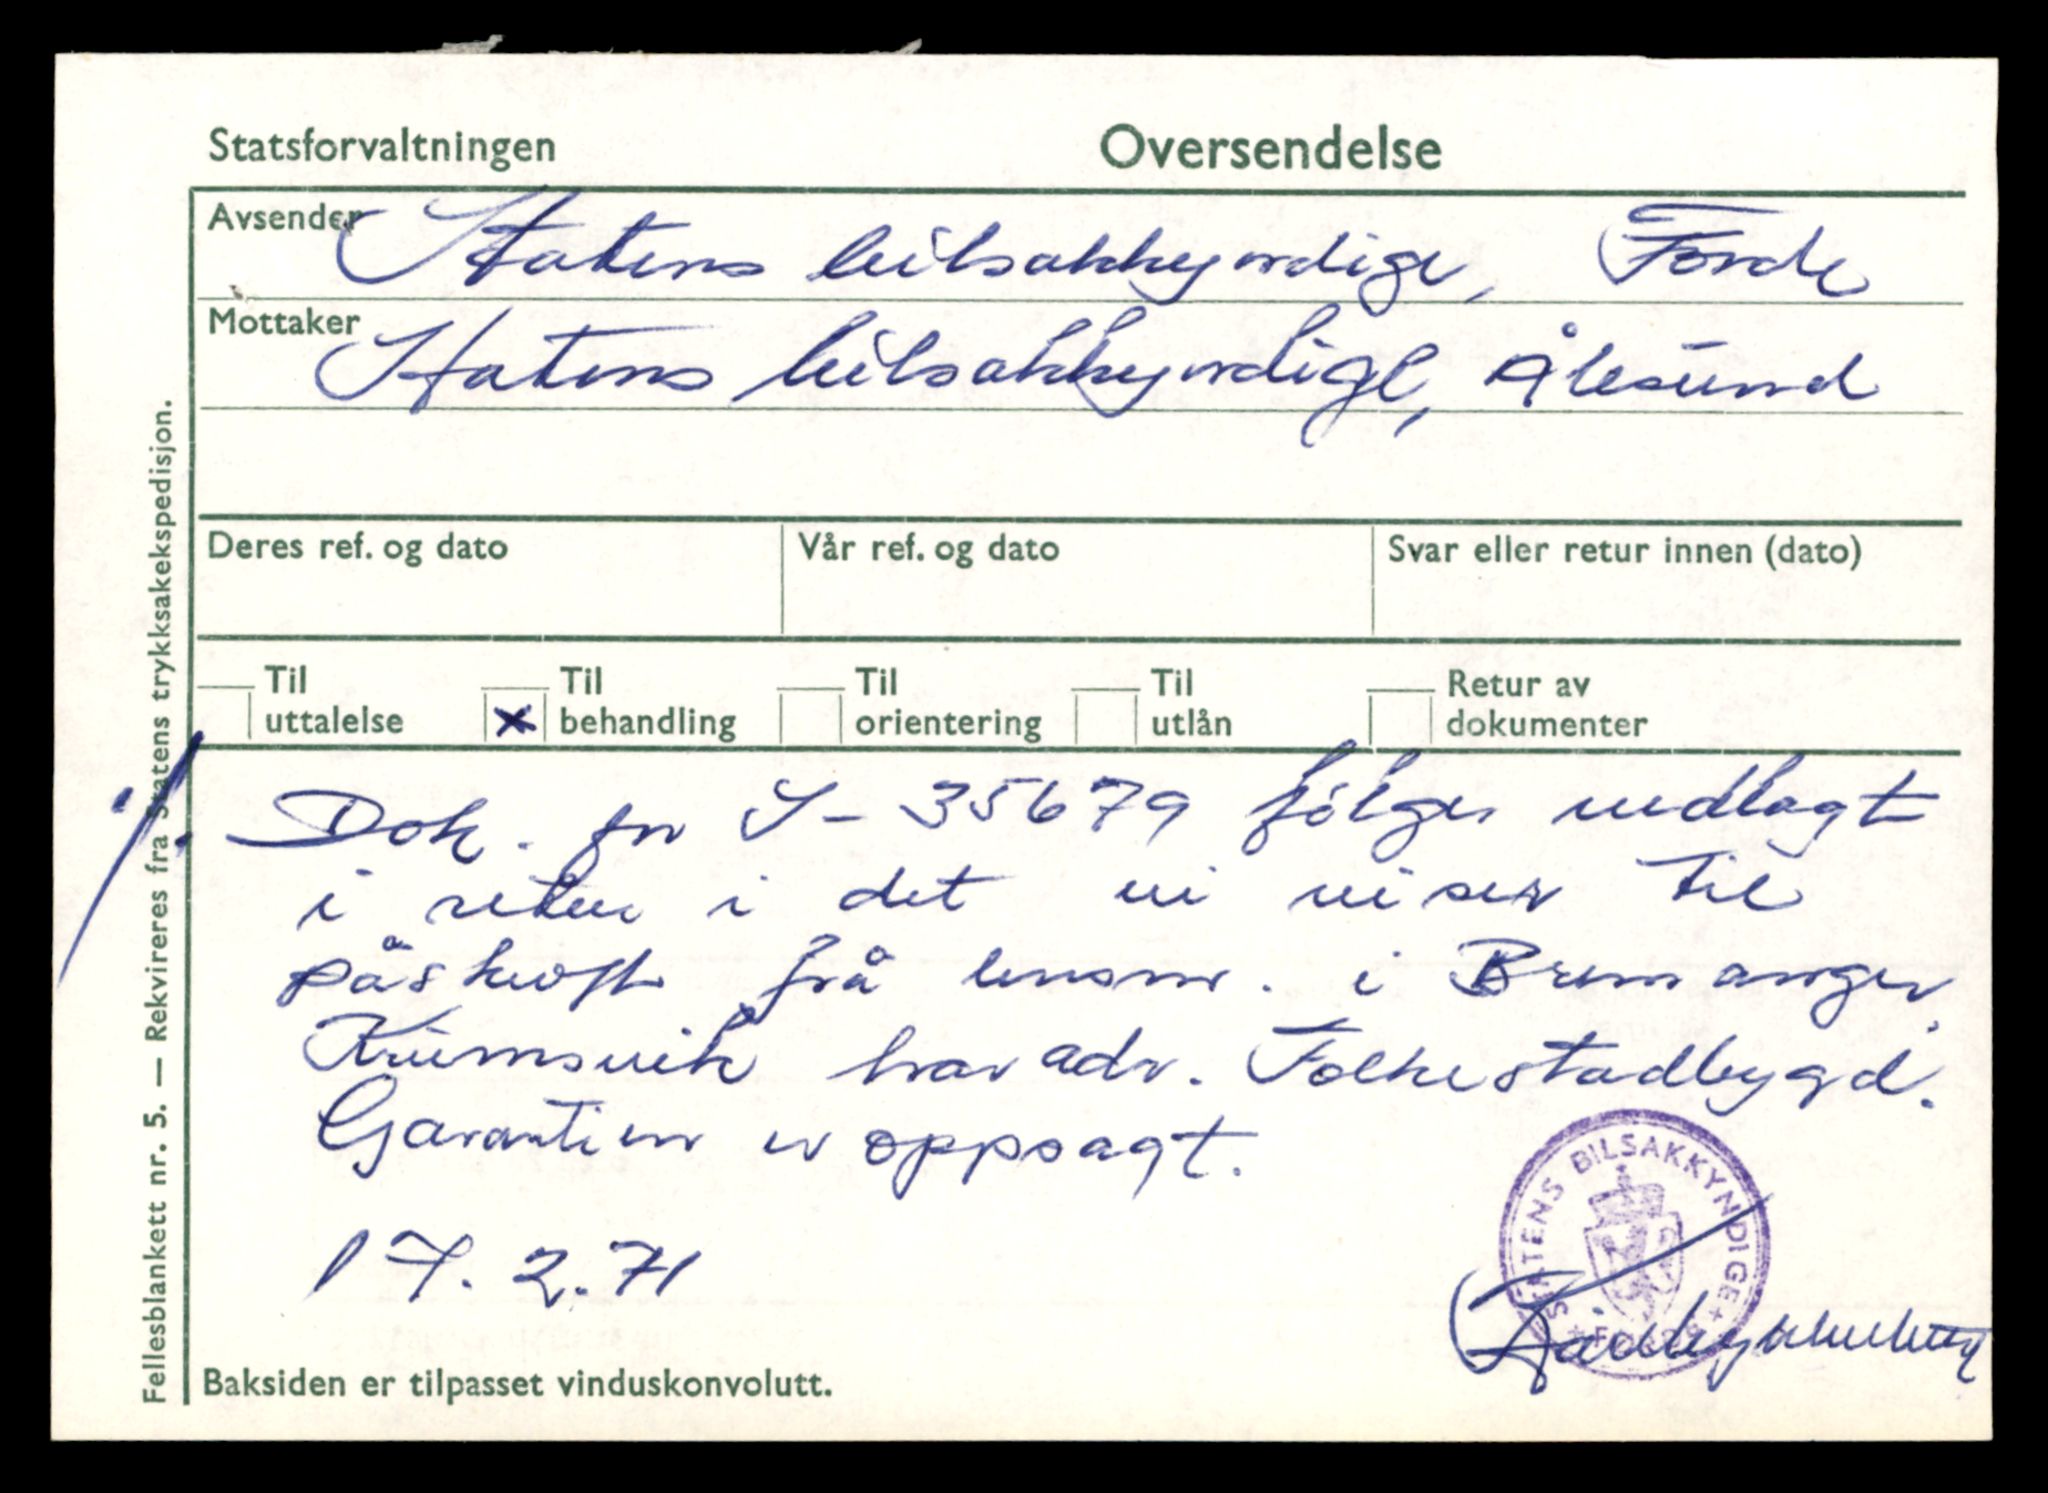 Statsforvaltningen Oversendelse
Avsender Statens bilsakkyndige, Førde
Mottaker Statens bilsakkyndige, Ålesund
Deres ref. og dato Vår ref. og dato Svar eller retur innen (dato)
Til uttalelse x Til behandling Til orientering Til utlån Retur av dokumenter
./. Dok. for S-35679 følger vedlagt
i retur i det vi viser til
påskrift frå lensm. i Bremanger.
Krumsvik har adr. Folkestadbygd.
Garantien er oppsagt.
17.2.71
STATENS BILSAKKYNDIGE + FØRDE +
Baksiden er tilpasset vinduskonvolutt.
Fellesblankett nr. 5. — Rekvireres fra Statens trykksakekspedisjon.